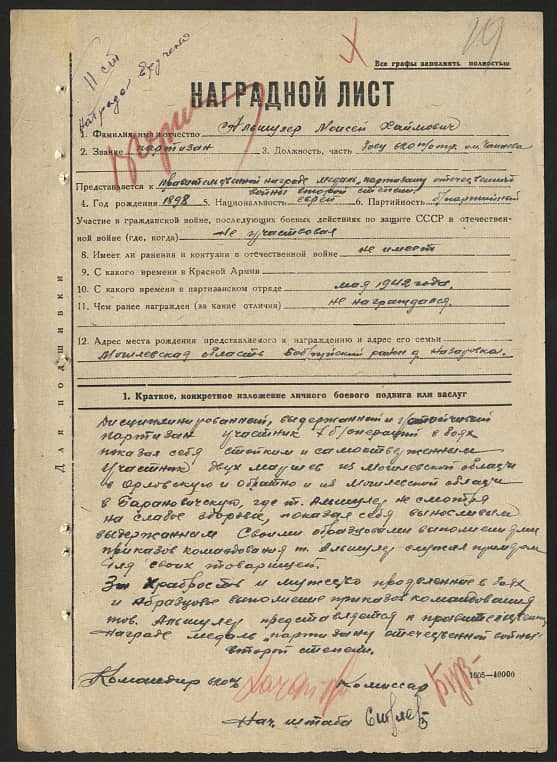 11 ст
Награда вручена
19
Все графы заполнять полностью
НАГРАДНОЙ ЛИСТ
1. Фамилия имя и отчество Альшулер Моисей Хаймович
2. Звание партизан 3. Должность, часть боец
Представляется к правительственной награде медаль партизану отечественной
войны второй степени
4. Год рождения 1898 5. Национальность еврей 6. Партийность б/партийный
Участие в гражданской войне, последующих боевых действиях по защите СССР в отечествен-
ной войне (где, когда) Не участвовал
8. Имеет ли ранения и контузии в отечественной войне не имеет
9. С какого времени в Красной Армии
10. С какого времени в партизанском отряде мая 1942 года.
11. Чем ранее награжден (за какие отличия) не награждался.
12. Адрес места рождения представляемого к награждению и адрес его семьи
Могилевская область Бобруйский район д.
Для подшивки
1. Краткое, конкретное изложение личного боевого подвига или заслуг
Дисциплинированный, выдержанный и устойчивый
партизан участник б/операций в боях
показал себя стойким и самоотверженным
Участник двух маршев из Могилевской области
в Орловскую и обратно и из Могилевской области
в Барановичскую, где т. Альшулер не смотря
на слабое здоровье, показал себя выносливым
выдержанным Своими образцовыми выполнениями
приказов командования т. Альшулер служил примером
для своих товарищей.
За храбрость и мужество проявленные в боях
и образцовое выполнение приказов командования
тов. Альшулер представляется к правительственной
награде медаль партизану отечественной войны
второй степени.
Командир Комиссар
1505—10000
Нач. штаба